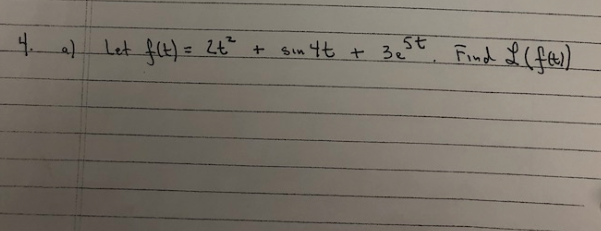 4. a) Let f(t) = 2t² + sin 4t + 3e⁵ᵗ. Find ℒ(f(t))